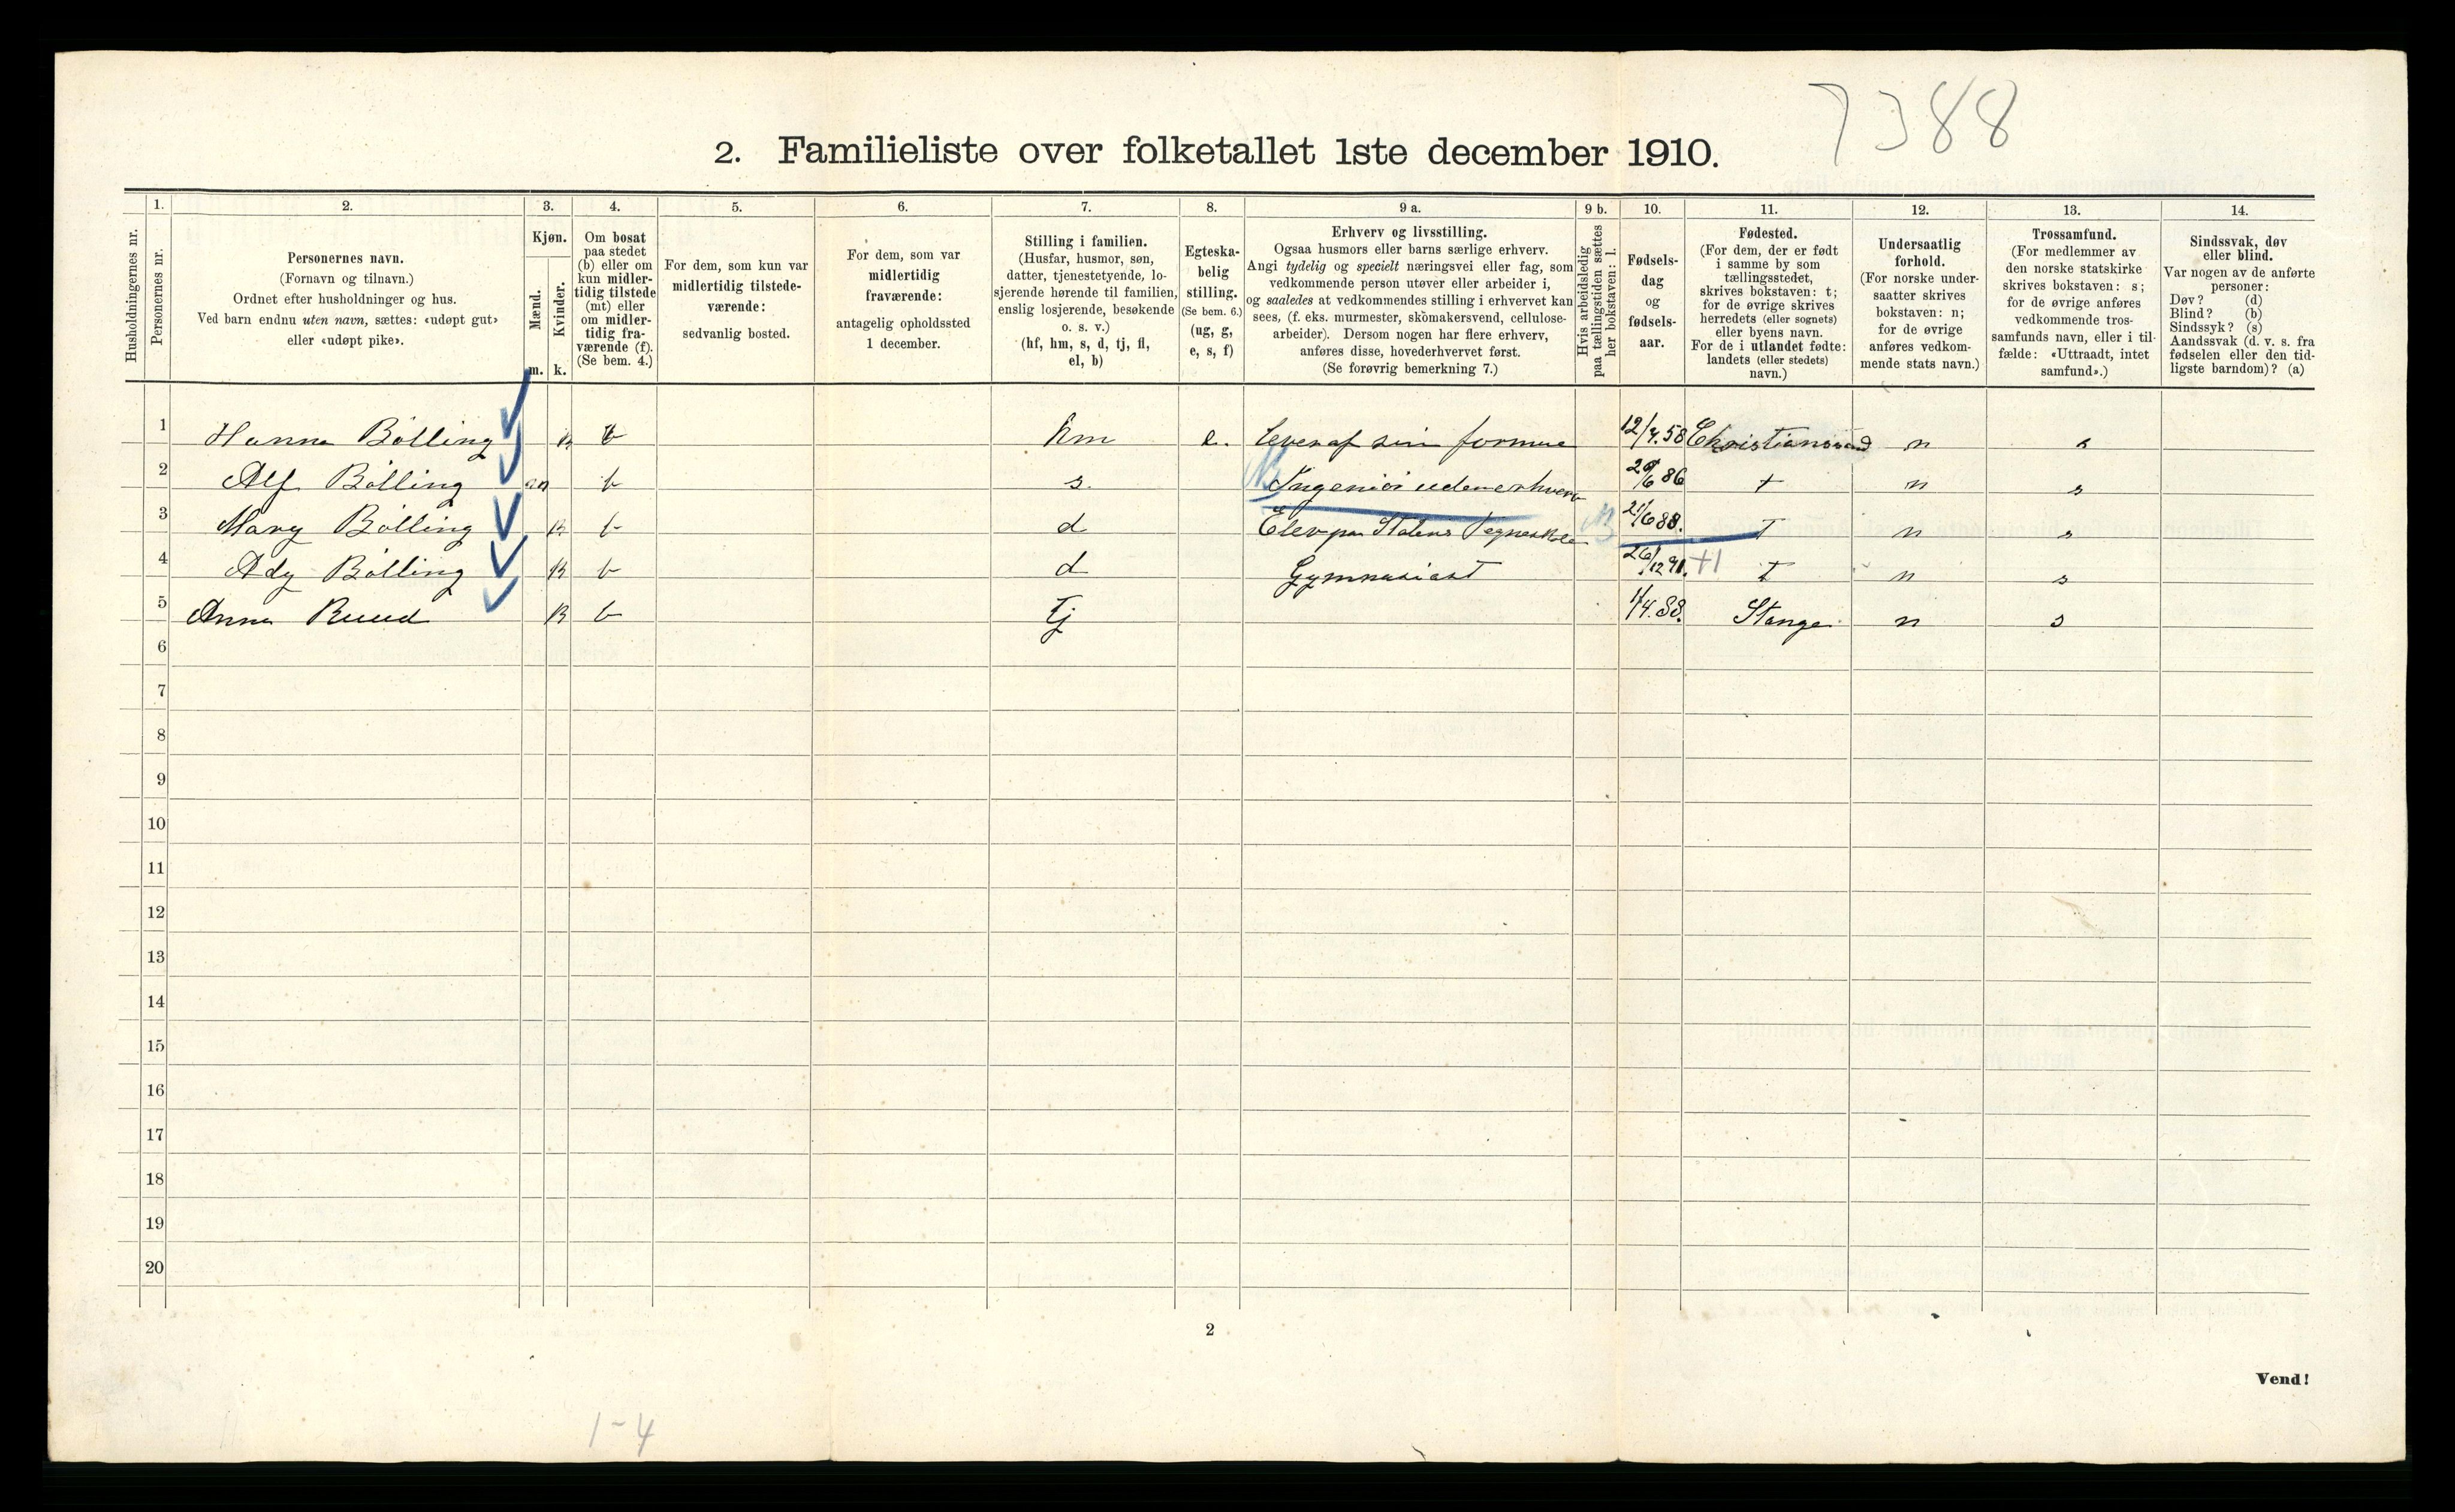 7388
2. Familieliste over folketallet 1ste december 1910.
Husholdningernes nr.
1.
Personernes nr.
2.
Personernes navn.
(Fornavn og tilnavn.)
Ordnet efter husholdninger og hus.
Ved barn endnu uten navn, sættes: «udøpt gut»
eller «udøpt pike».
3.
Kjøn.
Mænd.
Kvinder.
m. k.
4.
Om bosat
paa stedet
(b) eller om
kun midler-
tidig tilstede
(mt) eller
om midler-
tidig fra-
værende (f).
(Se bem. 4.)
5.
For dem, som kun var
midlertidig tilstede-
værende:
sedvanlig bosted.
6.
For dem, som var
midlertidig
fraværende:
antagelig opholdssted
1 december.
7.
Stilling i familien.
(Husfar, husmor, søn,
datter, tjenestetyende, lo-
sjerende hørende til familien,
enslig losjerende, besøkende
o. s. v.)
(hf, hm, s, d, tj, fl,
el, b)
8.
Egteska-
belig
stilling.
(Se bem. 6.)
(ug, g,
e, s, f)
9 a.
Erhverv og livsstilling.
Ogsaa husmors eller barns særlige erhverv.
Angi tydelig og specielt næringsvei eller fag, som
vedkommende person utøver eller arbeider i,
og saaledes at vedkommendes stilling i erhvervet kan
sees, (f. eks. murmester, skomakersvend, cellulose-
arbeider). Dersom nogen har flere erhverv,
anføres disse, hovederhvervet først.
(Se forøvrig bemerkning 7.)
9 b.
Hvis arbeidsledig
paa tællingstiden sættes
her bokstaven: l.
10.
Fødsels-
dag
og
fødsels-
aar.
11.
Fødested.
(For dem, der er født
i samme by som
tællingsstedet,
skrives bokstaven: t;
for de øvrige skrives
herredets (eller sognets)
eller byens navn.
For de i utlandet fødte:
landets (eller stedets)
navn.)
12.
Undersaatlig
forhold.
(For norske under-
saatter skrives
bokstaven: n;
for de øvrige
anføres vedkom-
mende stats navn.)
13.
Trossamfund.
(For medlemmer av
den norske statskirke
skrives bokstaven: s;
for de øvrige anføres
vedkommende tros-
samfunds navn, eller i til-
fælde: «Uttraadt, intet
samfund».)
14.
Sindssvak, døv
eller blind.
Var nogen av de anførte
personer:
Døv? (d)
Blind? (b)
Sindssyk? (s)
Aandssvak (d. v. s. fra
fødselen eller den tid-
ligste barndom)? (a)
1 Hanna Bölling k b hm e. lever af sin formue 12/4.58 Christianssand n s
2 Alf Bölling m b s. Ingeniör uden erhverv /6 86 t n s
3 Mary Bölling k b d Elev paa Statens Tegneskole 21/6 88. t n s
4 Ady Bölling k b d Gymnasiast 26/12 91. +1 t n s
5 Anna Ruud k b Tj 1/4.88. Stange n s
6
7
8
9
10
11
12
13
14
15
16
17
18
19
20
2
Vend!
1-4